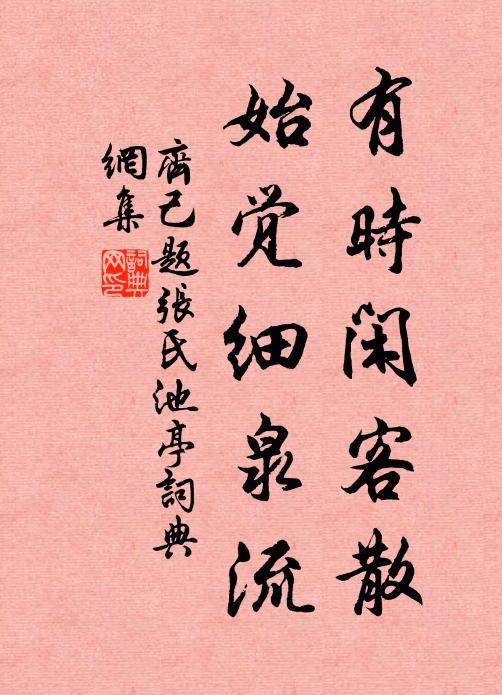 有時閑客散
始覚細泉流
齊己題張氏池亭詞典
網集
詞典
网印